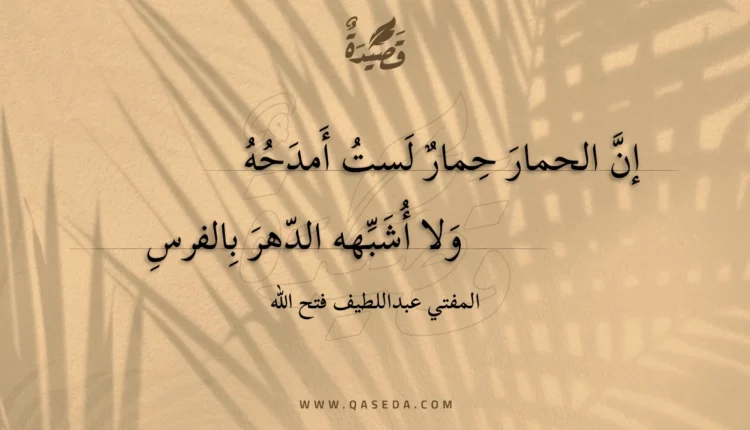 قَصِيْدَةٌ
إنَّ الحمارَ حِمارٌ لَستُ أَمدَحُهُ
وَلا أُشَبِّهه الدّهرَ بِالفرسِ
المفتي عبداللطيف فتح الله
WWW.QASEDA.COM